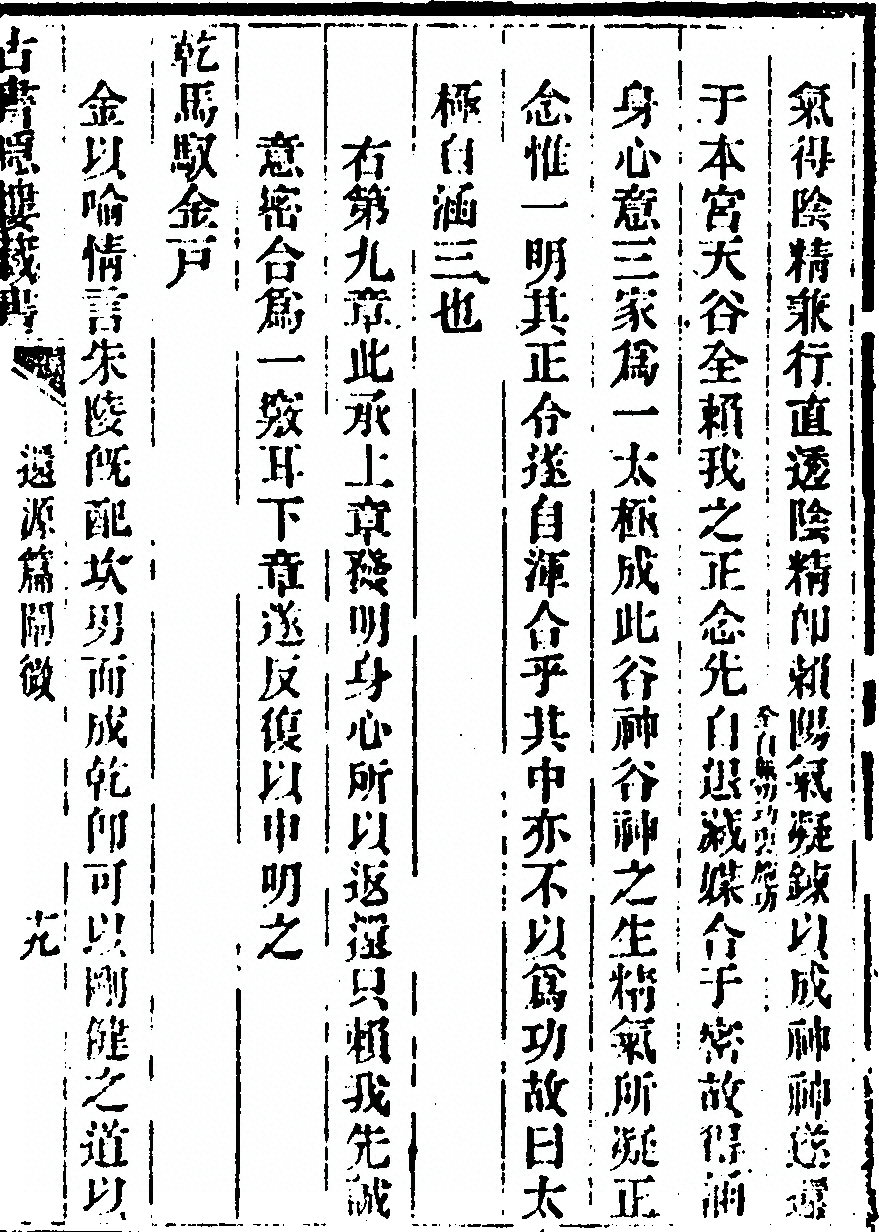 氣得陰精乘行直透陰精卽賴陽氣凝鍊以成神神遂還
于本宮天谷全賴我之正念先自退藏媒合于密故得涵
身心意三家爲一太極成此谷神谷神之生精氣所凝正
念惟一明其正合遂自渾合乎其中亦不以爲功故曰太
極自涵三也
右第九章此承上章發明身心所以返還只賴我先誠
意密合爲一竅耳下章遂反復以申明之
乾馬馭金戸
金以喻情言朱陵旣配坎男而成乾卽可以剛健之道以
古書隱樓藏書
還源篇闡微
十九